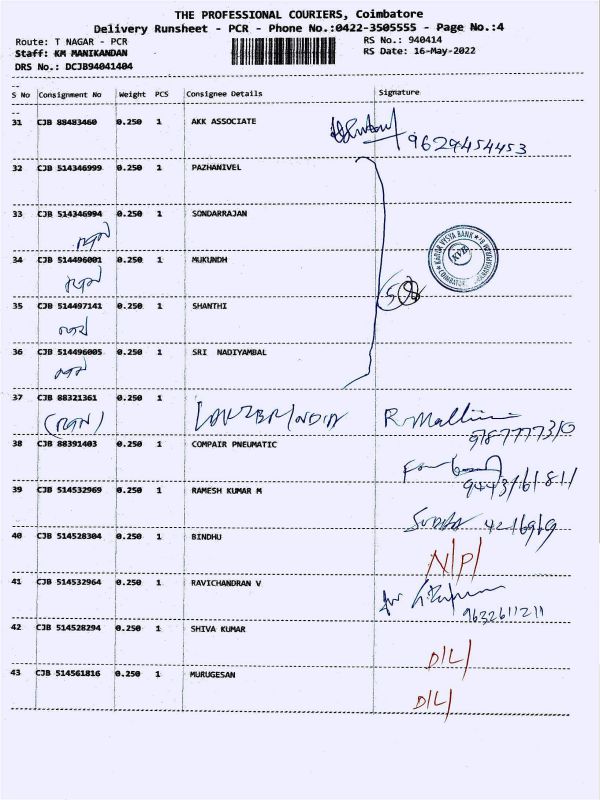 THE PROFESSIONAL COURIERS, Coimbatore
Delivery Runsheet - PCR - Phone No.:0422-3505555 - Page No.:4
Route: T NAGAR - PCR RS No.: 940414
Staff: KM MANIKANDAN RS Date: 16-May-2022
DRS No.: DCJB94041404
S No Consignment No Weight PCS Consignee Details Signature
31 CJB 88483460 0.250 1 AKK ASSOCIATE
9629454453
32 CJB 514346999 0.250 1 PAZHANIVEL
33 CJB 514346994 0.250 1 SONDARRAJAN
KARUR VYSYA BANK
34 CJB 514496001 0.250 1 MUKUNDH
35 CJB 514497141 0.250 1 SHANTHI
36 CJB 514496005 0.250 1 SRI NADIYAMBAL
37 CJB 88321361 0.250 1
38 CJB 88391403 0.250 1 COMPAIR PNEUMATIC
39 CJB 514532969 0.250 1 RAMESH KUMAR M
40 CJB 514528304 0.250 1 BINDHU
N/P/
41 CJB 514532964 0.250 1 RAVICHANDRAN V
9632611211
42 CJB 514528294 0.250 1 SHIVA KUMAR
D/L/
43 CJB 514561816 0.250 1 MURUGESAN
D/L/